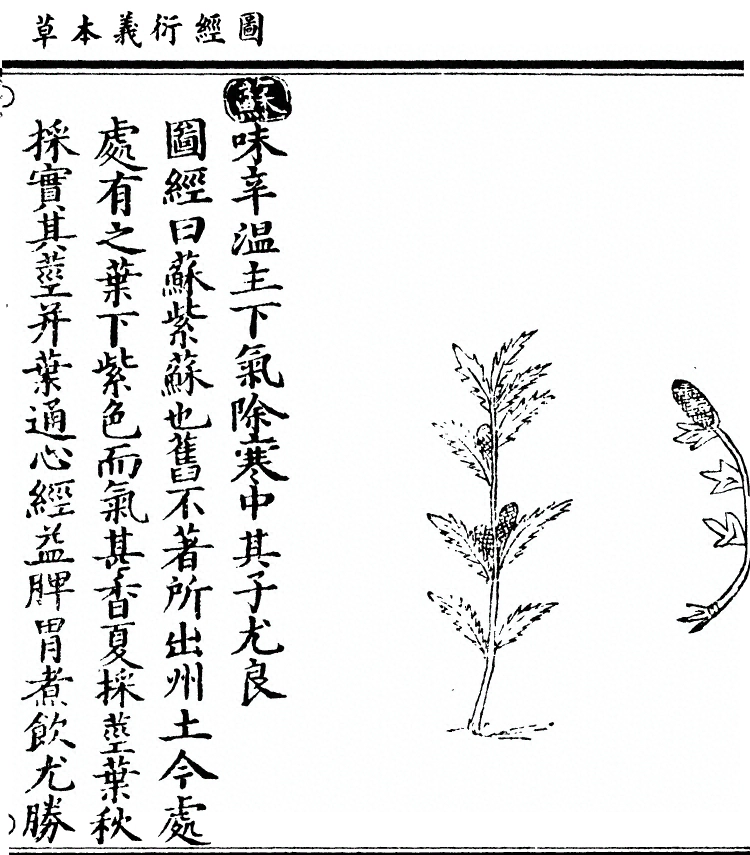 圖經衍義本草
蘇味辛温主下氣除寒中其子尤良
圖經曰蘇紫蘇也舊不著所出州土今處
處有之葉下紫色而氣甚香夏採莖葉秋
採實其莖并葉通心經益脾胃煮飲尤勝